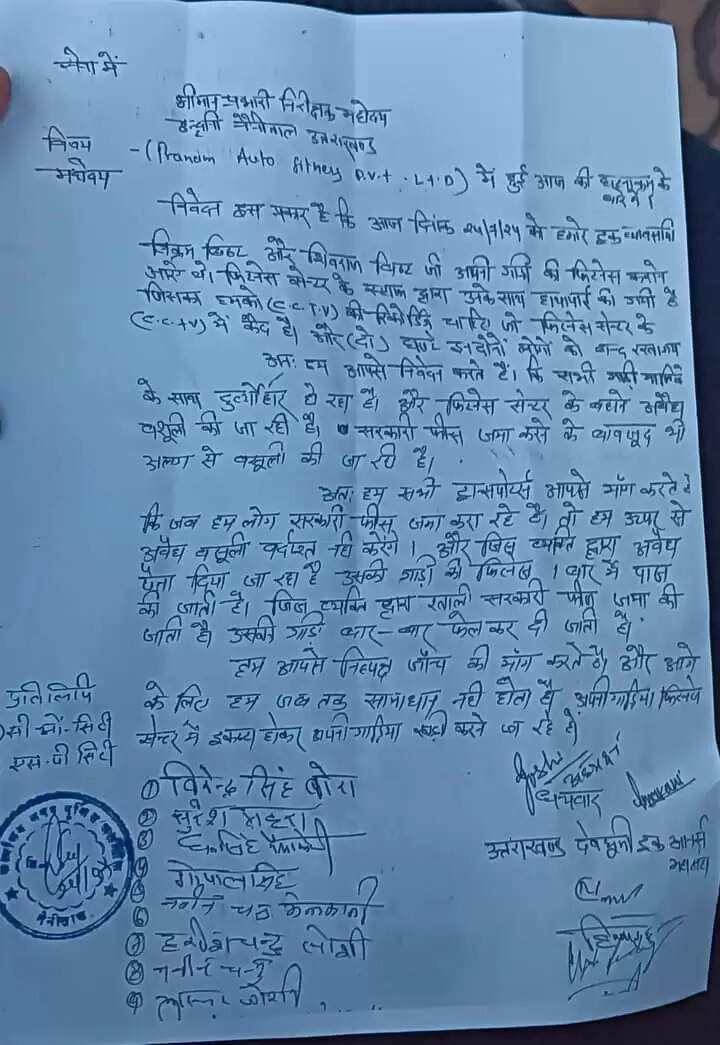 सेवा में
श्रीमान प्रभारी निरीक्षक महोदय
हल्द्वानी नैनीताल उत्तराखण्ड
विषय - (Pranam Auto fitness P.v.t. L.t.D) में हुई आज की के बारे में।
महोदय
निवेदन इस प्रकार है कि आज दिनांक को हमारे ट्रक व्यवसायी
विक्रम बिष्ट और शिवराज बिष्ट जी अपनी गाड़ी की फिटनेस कराने
आऐ थे। फिटनेस सेन्टर के द्वारा उनके साथ हाथापाई की गयी है
जिसका हमको (C.C.T.V) की रिकोर्डिंग चाहिए जो फिटनेस सेन्टर के
(C.C.TV) में कैद है। और (दो) घण्टे इन दोनों लोगों को बन्द रखा गया
अतः हम आपसे निवेदन करते है। कि सभी गाड़ी मालिकों
के साथ दुर्व्योहार हो रहा है। और फिटनेस सेन्टर के बहाने अवैध
वशूली की जा रही है। सरकारी फीस जमा करने के बावजूद भी
अलग से वसूली की जा रही है।
अतः हम सभी ट्रान्सपोर्टर्स आपसे माँग करते है
कि जब हम लोग सरकारी फीस जमा करा रहे है। तो हम ऊपर से
अवैध वसूली वर्दाश्त नही करेंगे। और जिस व्यक्ति द्वारा अवैध
पैसा दिया जा रहा है उसकी गाड़ी की फिटनेस 1 बार में पास
की जाती है। जिस व्यक्ति द्वारा खाली सरकारी फीस जमा की
जाती है। उसकी गाड़ी बार-बार फेल कर दी जाती है।
हम आपसे निष्पक्ष जाँच की माँग करते है। और आगे
के लिए हम जब तक सामाधान नही होता है अपनी गाडिया फिटनेस
सेन्टर में इकट्ठा होकर अपनी गाडिया खड़ी करने जा रहे है।
प्रतिलिपि
सी.ओ. सिटी
एस.पी सिटी
① विरेन्द्र सिंह बोरा
②
③
④ गोपाल सिंह
⑤
⑥
⑦ हरीश चन्द्र जोशी
⑧
⑨ जोशी
Joshi
धन्यवाद
उत्तराखण्ड देवभूमि ट्रक महासंघ
नैनीताल